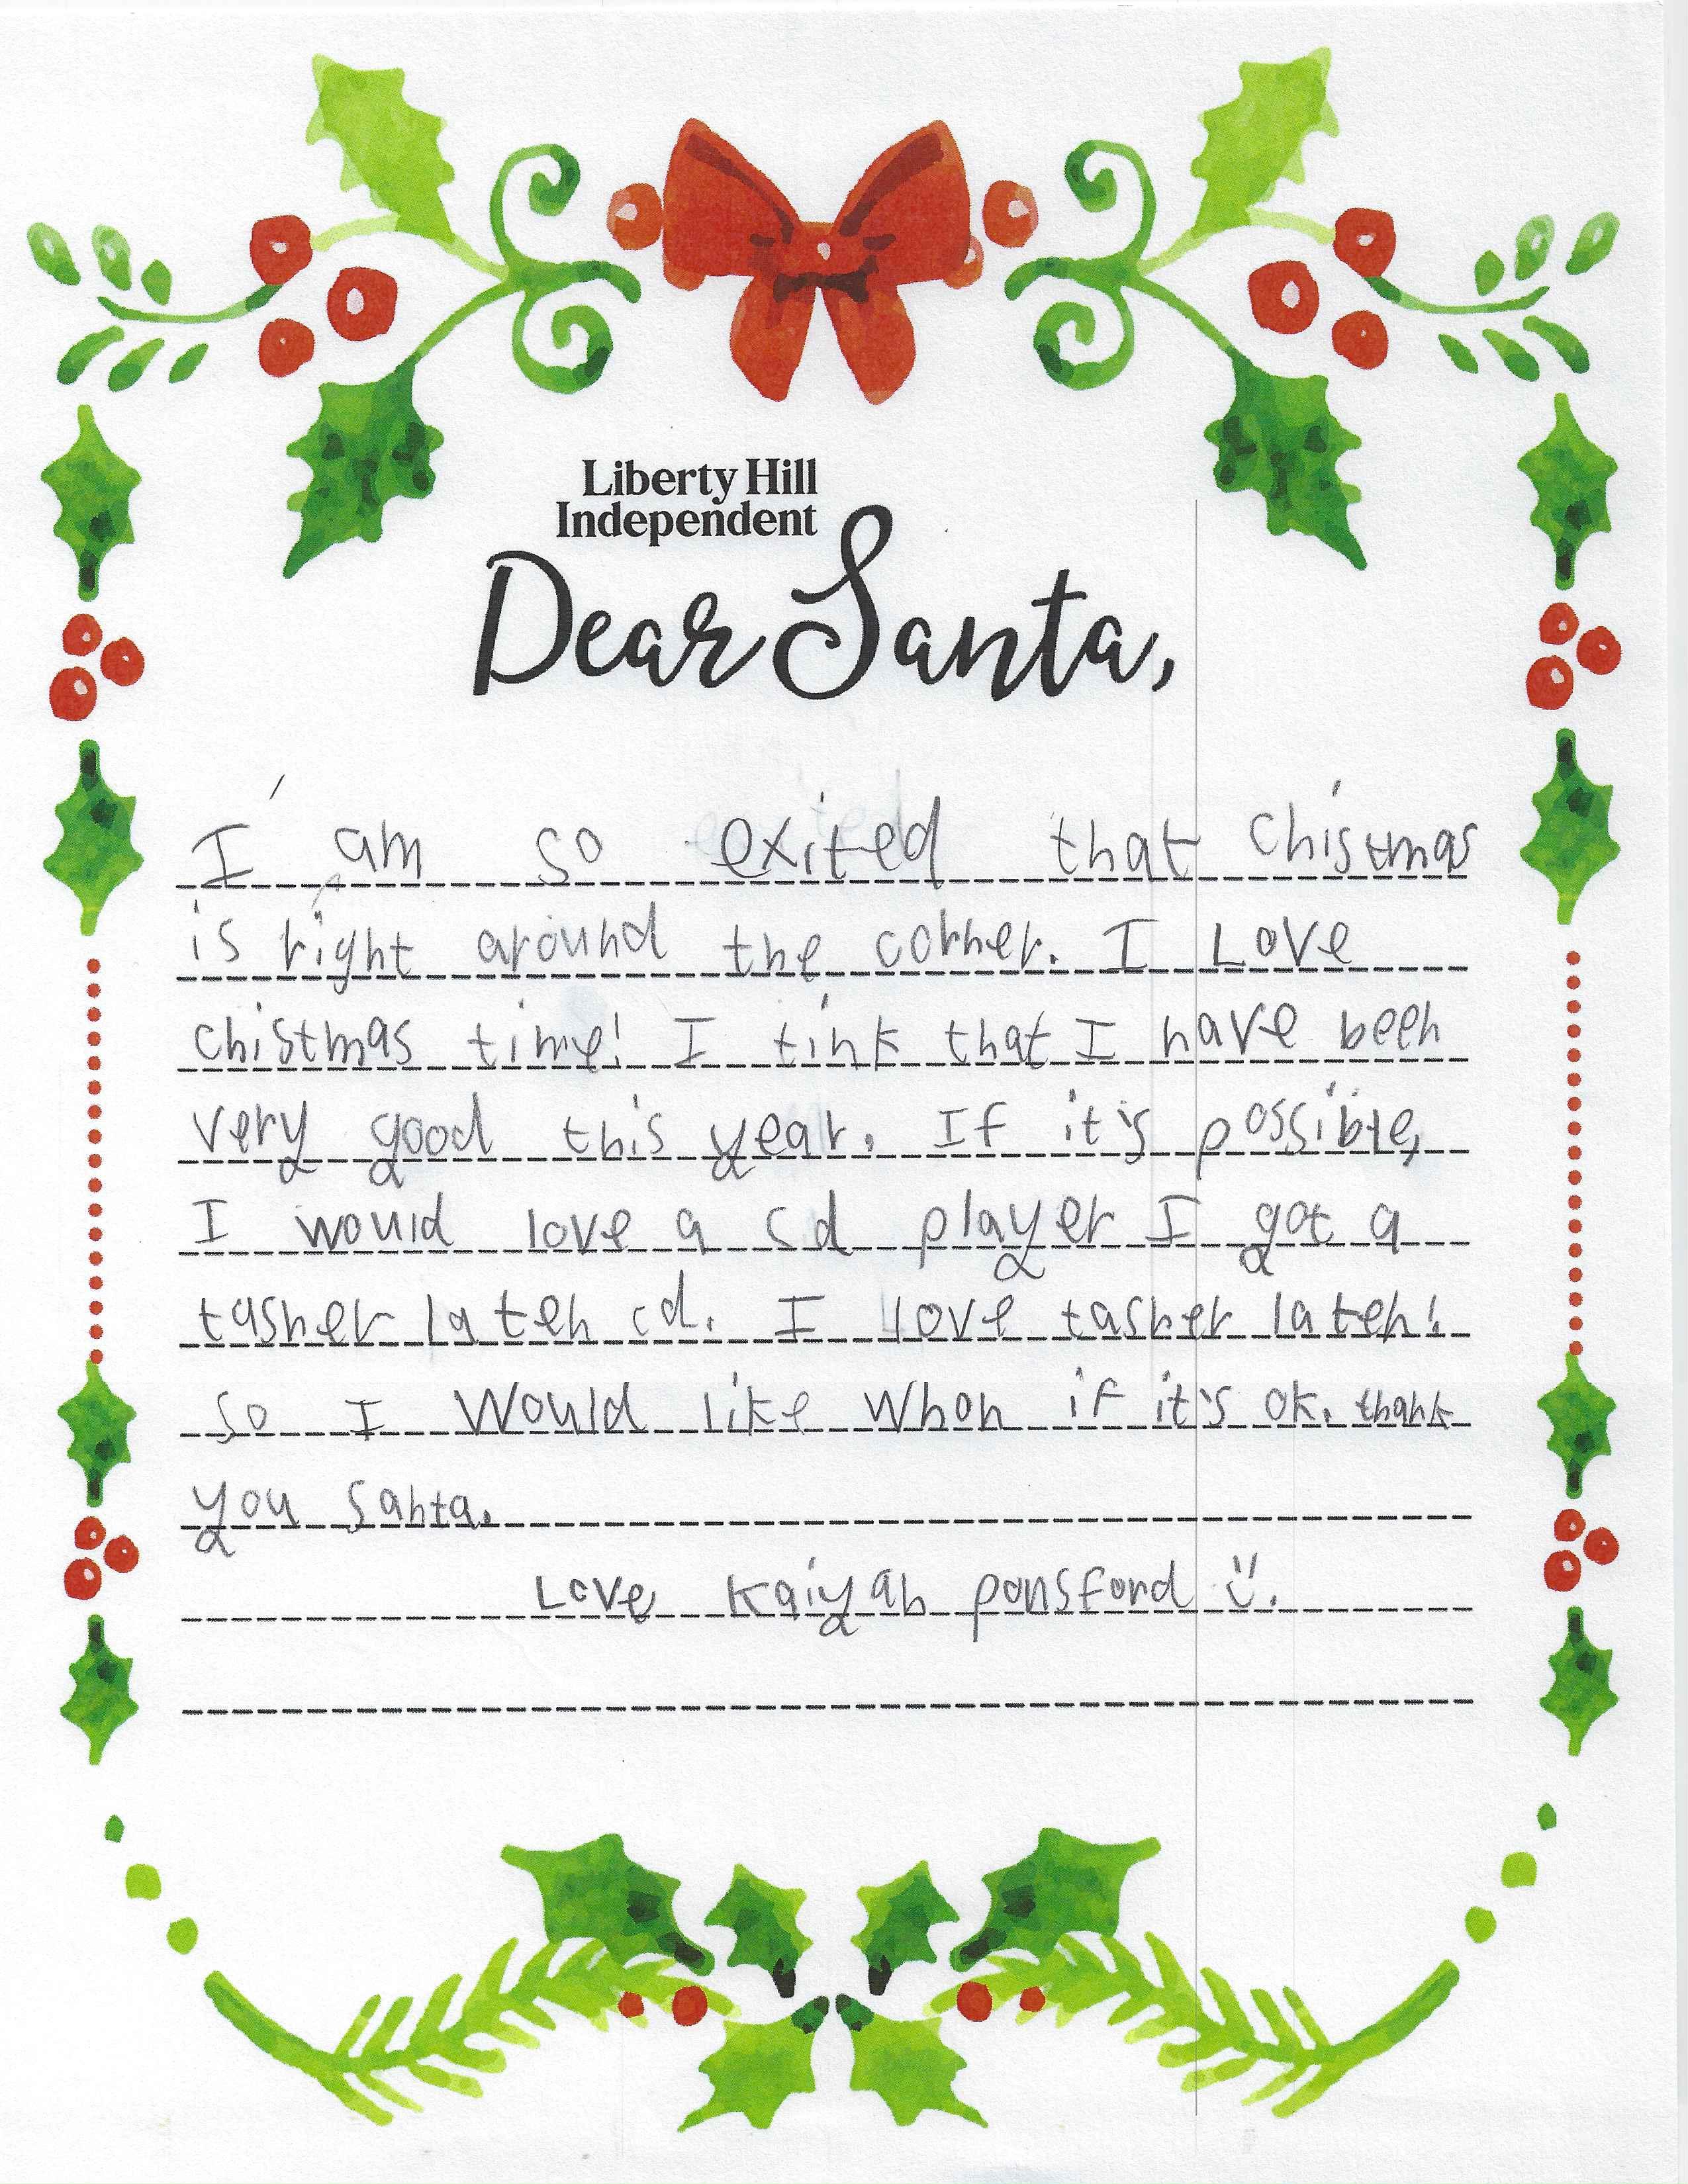 Liberty Hill
Independent
Dear Santa,
I am so exited that chistmas
is right around the corner. I Love
chistmas time! I tink that I have been
very good this year. If it's possible,
I would love a cd player I got a
tasher lateh cd. I love tasher lateh!
so I Would like Whon if it's ok. thank
you Santa.
Love Kaiyah ponsford :).